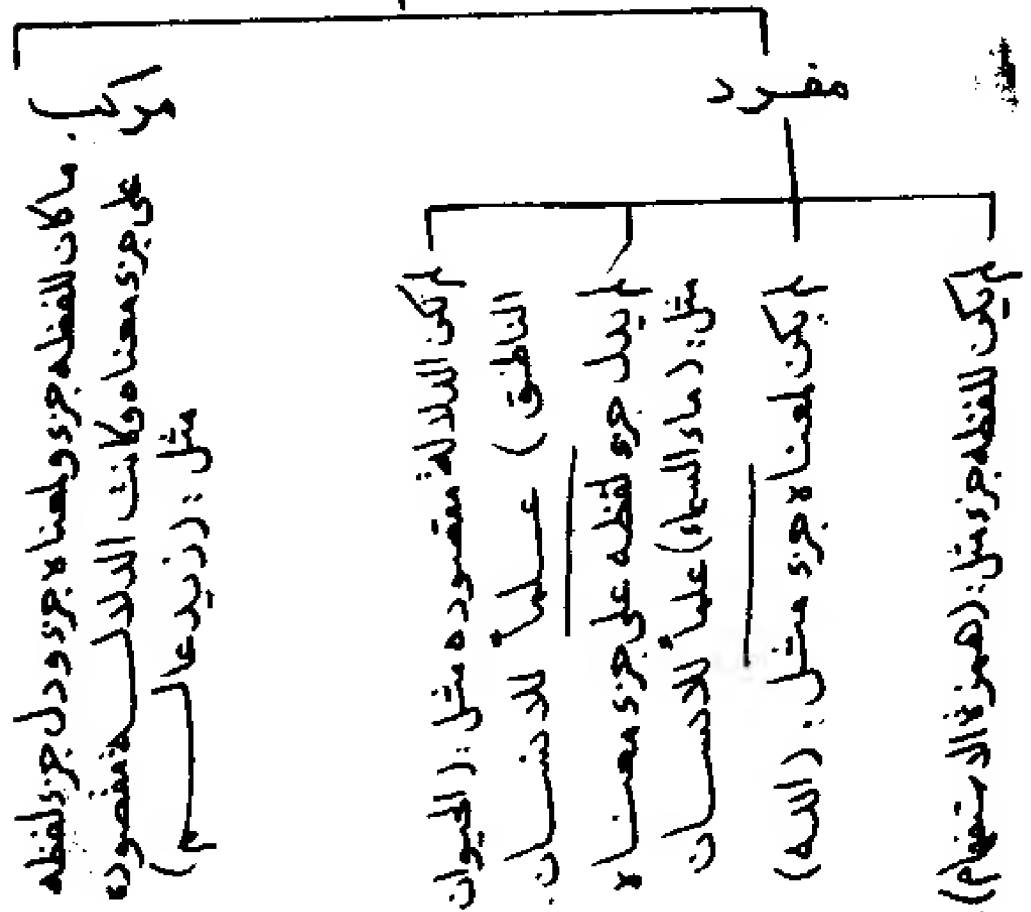 مفرد
لم يكن للفظه جزء مثل: (همزة الاستفهام)
لم يكن لمعناه جزء مثل: (الله)
لم يدل جزء لفظه على جزء معناه
مثل: (ماء السماء) علماً للانسان
لم تكن الدلالة مقصوده مثل: (الحيوان
الناطق) علماً للانسان.
مركب
ما كان للفظه جزء ولمعناه جزء ودل جزء لفظه
على جزء معناه وكانت الدلالة مقصوده
مثل: (زيد عالم)